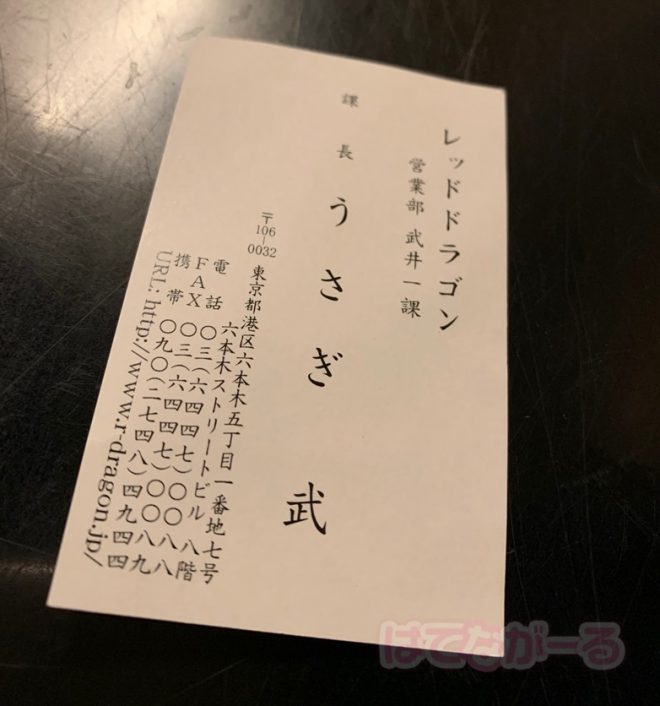 レッドドラゴン
営業部 武井一課
課長 うさぎ 武
〒106-0032 東京都港区六本木五丁目一番地七号
六本木ストリートビル 八階
電話 〇三(六四四七)〇〇八八
FAX 〇三(六四四七)〇〇八九
携帯 〇九〇(二七四八)四九四四
URL: http://www.r-dragon.jp/
はてながーる